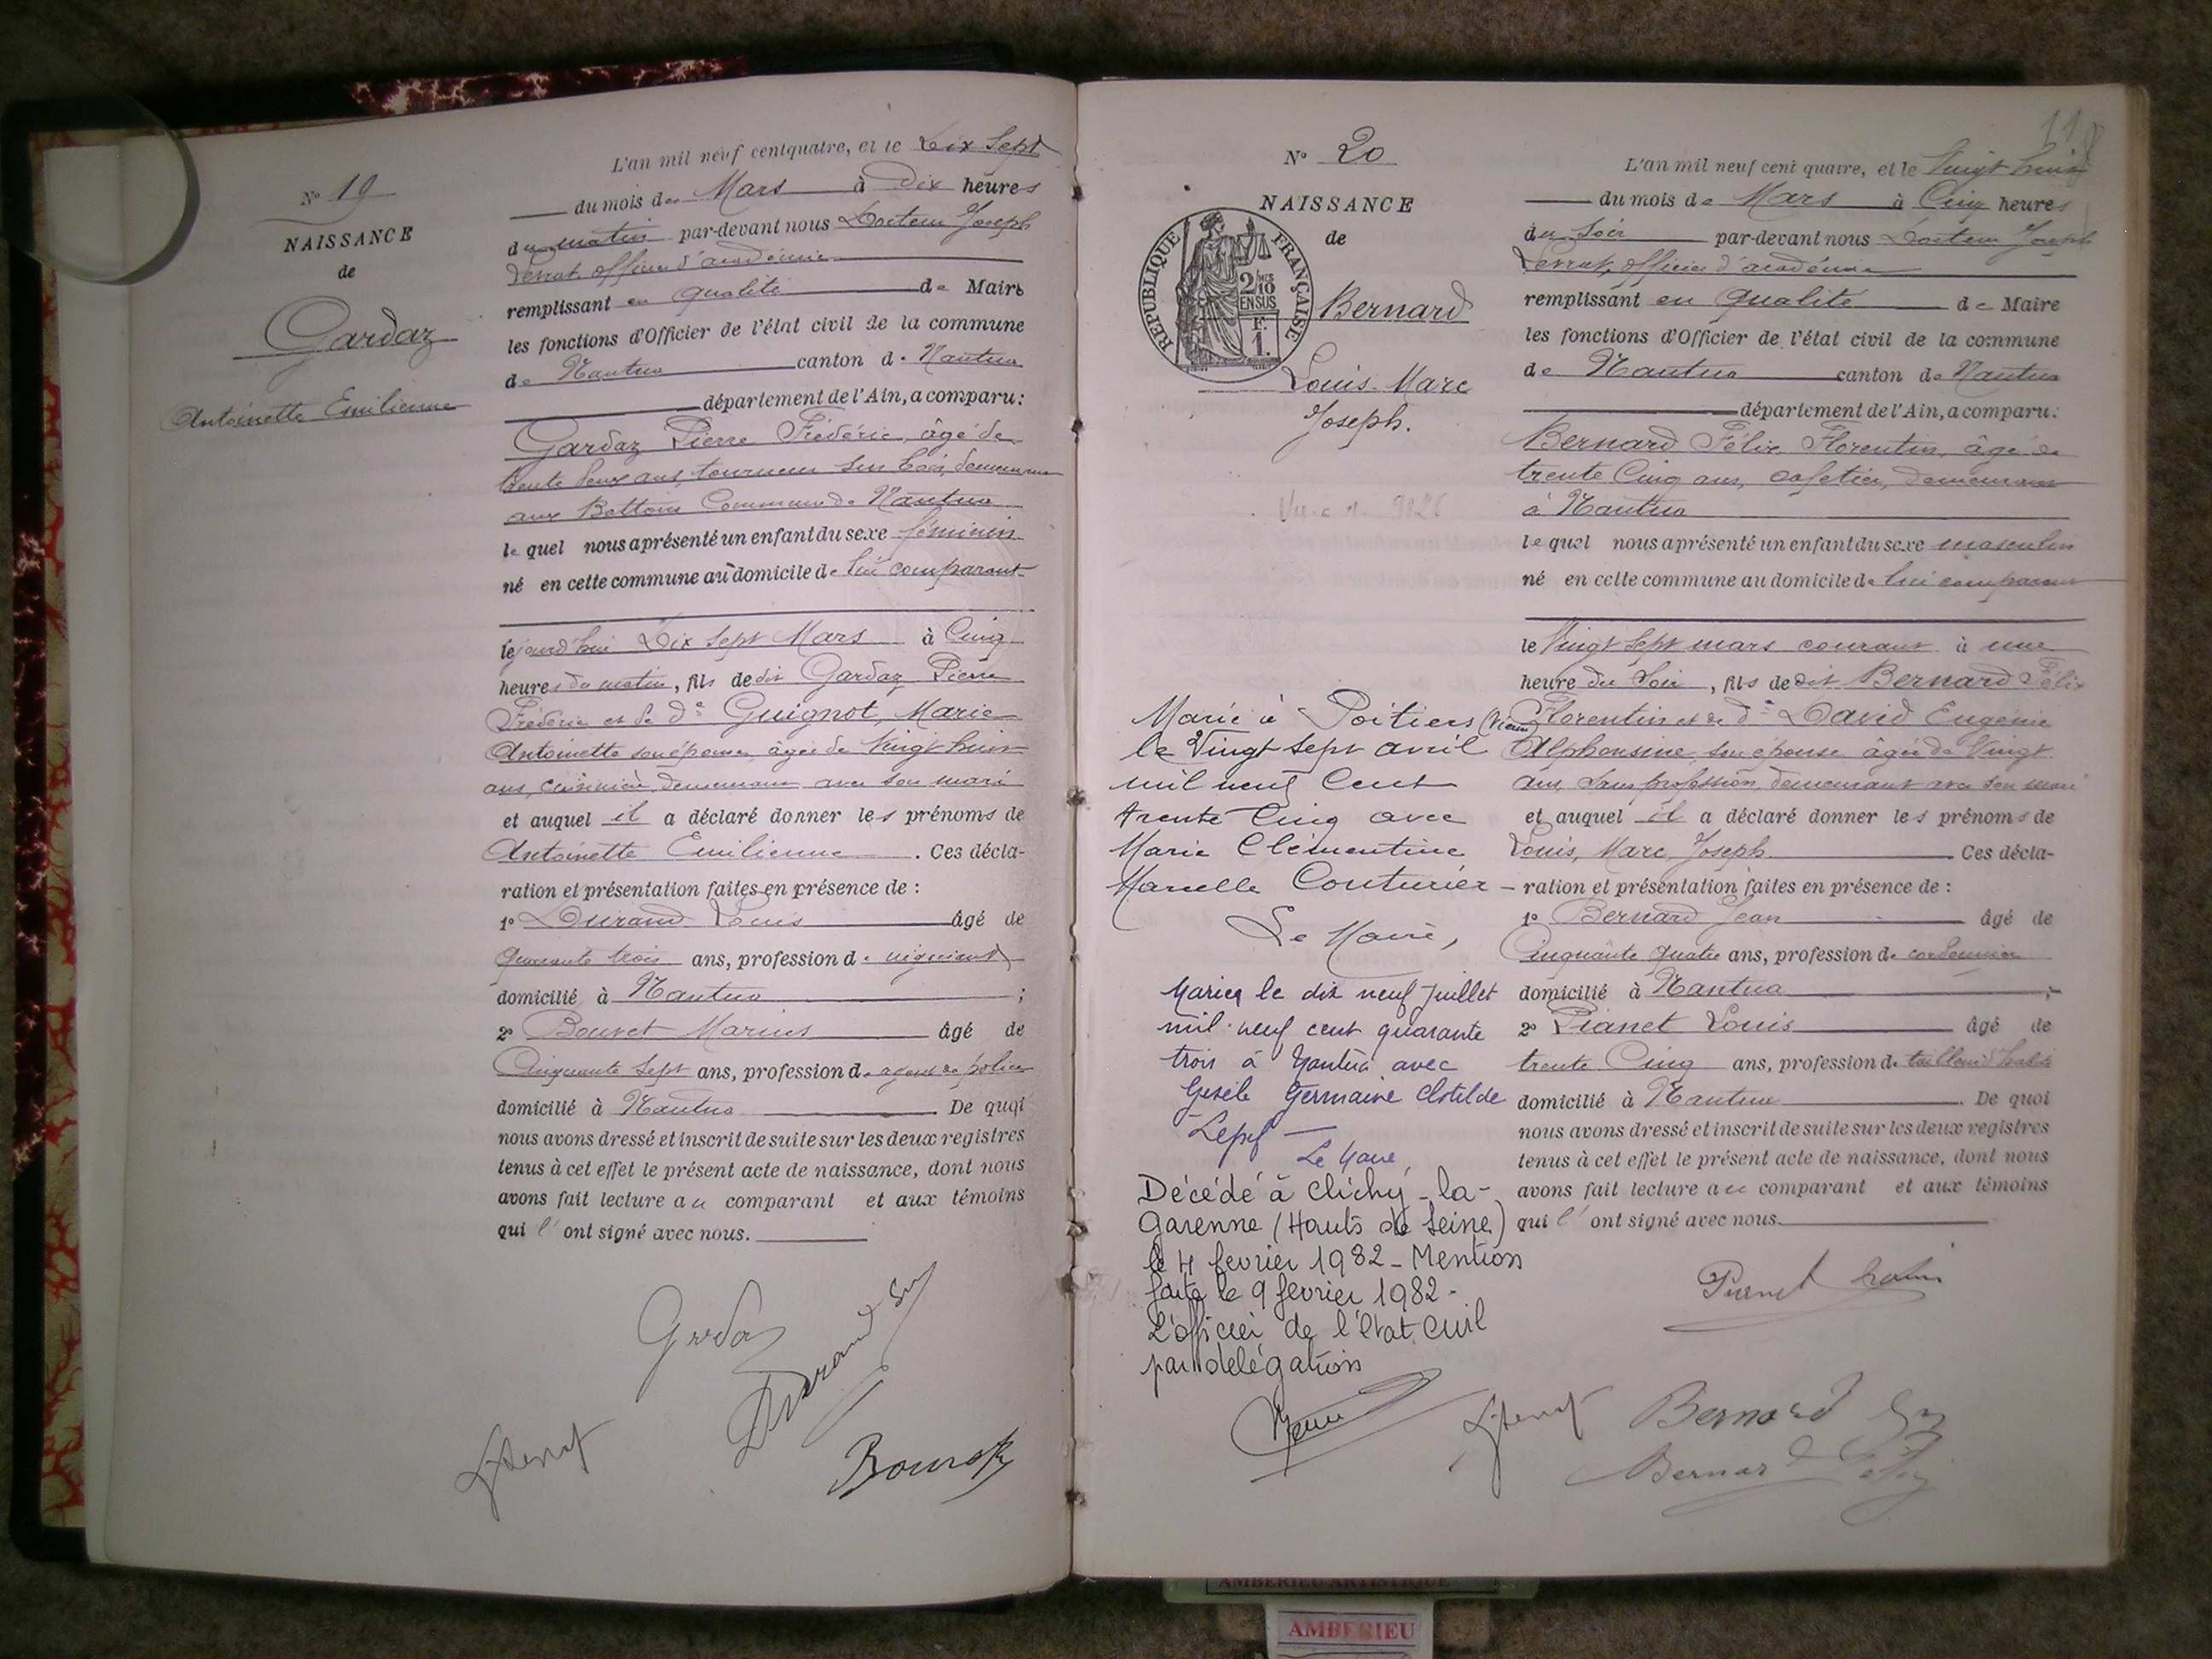 Nº 19
NAISSANCE
de
Gardaz
Antoinette Emilienne
L'an mil neuf cent quatre, et le Dix Sept
du mois de Mars à Dix heures
du matin par-devant nous Docteur Joseph
officier d'académie
remplissant en qualité de Maire
les fonctions d'Officier de l'état civil de la commune
de Nantua canton de Nantua
département de l'Ain, a comparu:
Gardaz Pierre Frédéric, âgé de
trente deux ans, tourneur sur bois, demeurant
aux Battoirs Commune de Nantua
lequel nous a présenté un enfant du sexe féminin
né en cette commune au domicile de lui comparant
lejourd'hui Dix Sept Mars à Cinq
heures du matin, fils de dit Gardaz Pierre
Frédéric et de De Guignot, Marie
Antoinette son épouse, âgée de Vingt huit
ans, cuisinière, demeurant avec son mari
et auquel il a déclaré donner les prénoms de
Antoinette Emilienne. Ces décla-
ration et présentation faites en présence de :
1º Durand Louis âgé de
quarante trois ans, profession de négociant
domicilié à Nantua ;
2º Bouvet Marius âgé de
Cinquante Sept ans, profession de agent de police
domicilié à Nantua. De quoi
nous avons dressé et inscrit de suite sur les deux registres
tenus à cet effet le présent acte de naissance, dont nous
avons fait lecture au comparant et aux témoins
qui l'ont signé avec nous.
Gardaz
Durand
Bouvet
11
Nº 20
NAISSANCE
de
RÉPUBLIQUE FRANÇAISE
2/10
EN SUS
F.
1.
Bernard
Louis Marc
Joseph.
L'an mil neuf cent quatre, et le Vingt huit
du mois de Mars à Cinq heures
du Soir par-devant nous Docteur Joseph
officier d'académie
remplissant en qualité de Maire
les fonctions d'Officier de l'état civil de la commune
de Nantua canton de Nantua
département de l'Ain, a comparu:
Bernard Félix Florentin, âgé de
trente Cinq ans, cafetier, demeurant
à Nantua
lequel nous a présenté un enfant du sexe masculin
né en cette commune au domicile de lui comparant
le Vingt Sept mars courant à une
heure du Soir, fils de dit Bernard Félix
Florentin et de De David Eugénie
Alphonsine, son épouse âgée de Vingt
ans, Sans profession, demeurant avec son mari
et auquel il a déclaré donner les prénoms de
Louis, Marc, Joseph. Ces décla-
ration et présentation faites en présence de :
1º Bernard Jean âgé de
Cinquante quatre ans, profession de cordonnier
domicilié à Nantua ;
2º Pianet Louis âgé de
trente Cinq ans, profession de tailleur d'habits
domicilié à Nantua. De quoi
nous avons dressé et inscrit de suite sur les deux registres
tenus à cet effet le présent acte de naissance, dont nous
avons fait lecture au comparant et aux témoins
qui l'ont signé avec nous.
Marié à Poitiers (Vienne)
le Vingt sept avril
mil neuf Cent
trente Cinq avec
Marie Clémentine
Marcelle Couturier
Le Maire,
Marié le dix neuf Juillet
mil neuf cent quarante
trois à Nantua avec
Gisèle Germaine Clotilde
Le Maire,
Décédé à Clichy-la-
Garenne (Hauts de Seine)
le 4 fevrier 1982 - Mention
faite le 9 fevrier 1982 -
L'officier de l'état civil
par délégation
Bernard
Bernard Félix
AMBERIEU ARTISTIQUE
AMBERIEU